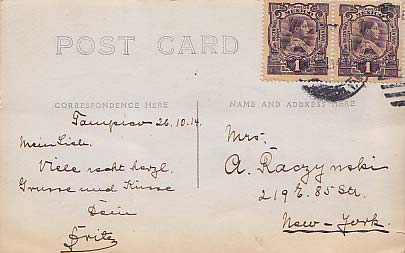 POST CARD
MEXICO MEXICO
1 1
CORRESPONDENCE HERE
NAME AND ADDRESS HERE
Tampico 26.10.14.
Mein Lieb.
Viele recht herzl.
Grüsse und Küsse
Dein
Fritz
Mrs.
A. Raczynski
219 E. 85 Str.
New-York.